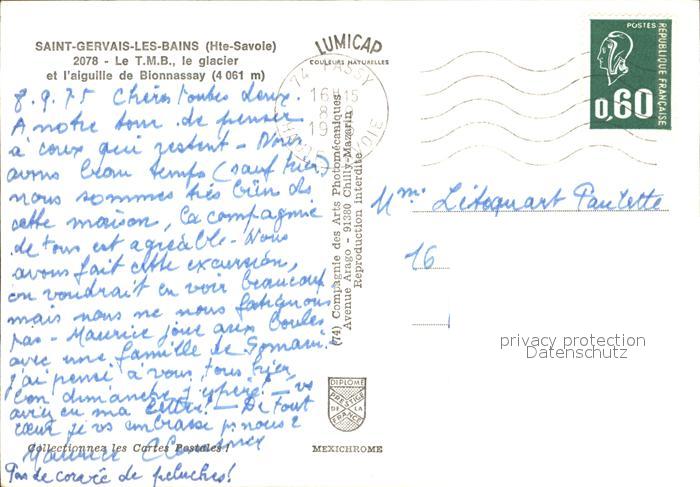 SAINT-GERVAIS-LES-BAINS (Hte-Savoie)
2078 - Le T.M.B., le glacier
et l'aiguille de Bionnassay (4 061 m)
LUMICAP
COULEURS NATURELLES
8.9.75 Chères toutes deux.
A notre tour de penser
à ceux qui restent - Nous
avons beau temps (sauf hier)
nous sommes très bien ds
cette maison, la compagnie
de tous est agréable - Nous
avons fait cette excursion,
on voudrait en voir beaucoup
mais nous ne nous fatiguons
pas - Maurice joue aux boules
avec une famille de Somain!
j'ai pensé à vous tous hier,
bon dimanche j'espère! - vs
avez eu ma lettre! - De tout
cœur je vs embrasse p. nous 2
Maurice
Collectionnez les Cartes Postales !
Pas de corvée de peluches!
74 PASSY
16H15
8-9
19
HTE SAVOIE
(74) Compagnie des Arts Photomécaniques
Avenue Arago - 91380 Chilly-Mazarin
Reproduction Interdite
POSTES
RÉPUBLIQUE FRANÇAISE
0,60
Mme Paulette
16
privacy protection
Datenschutz
DIPLOME
PRESTIGE
DE LA
FRANCE
MEXICHROME